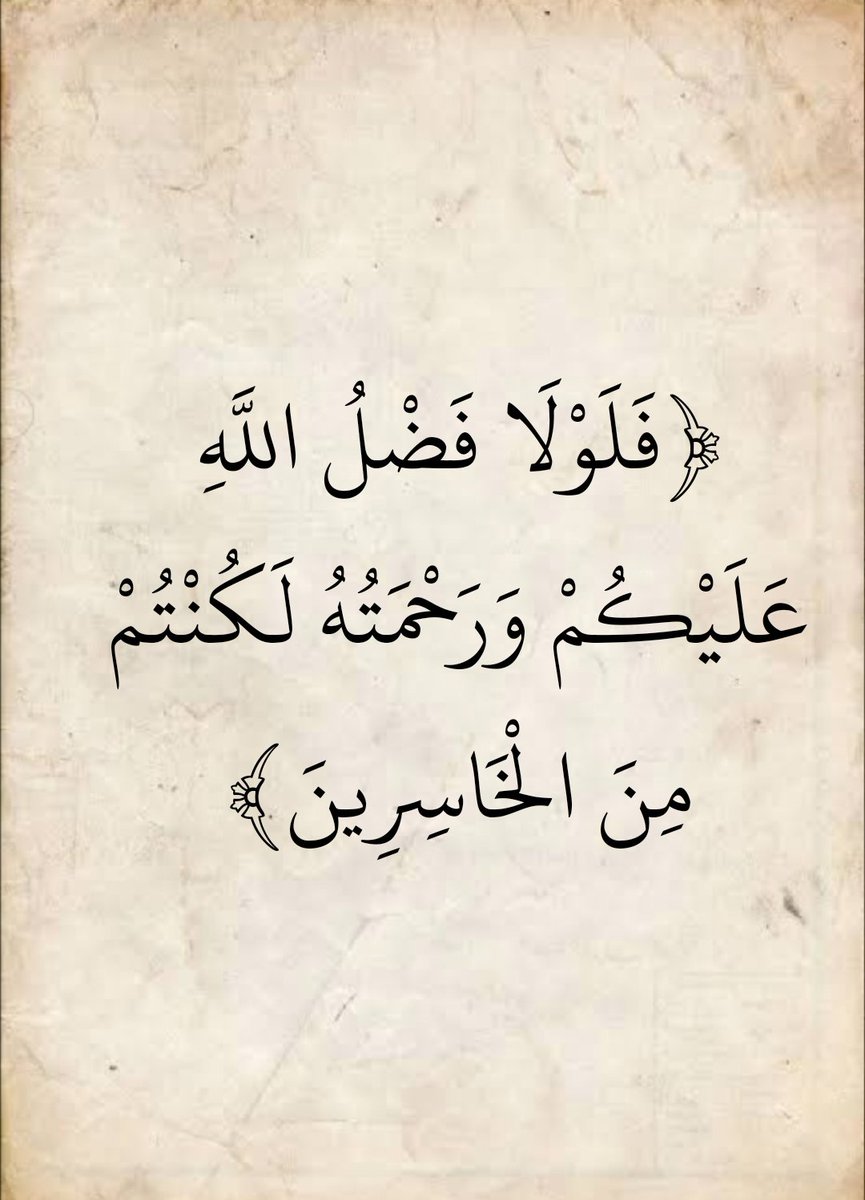 ﴿فَلَوْلَا فَضْلُ اللَّهِ
عَلَيْكُمْ وَرَحْمَتُهُ لَكُنْتُمْ
مِنَ الْخَاسِرِينَ﴾